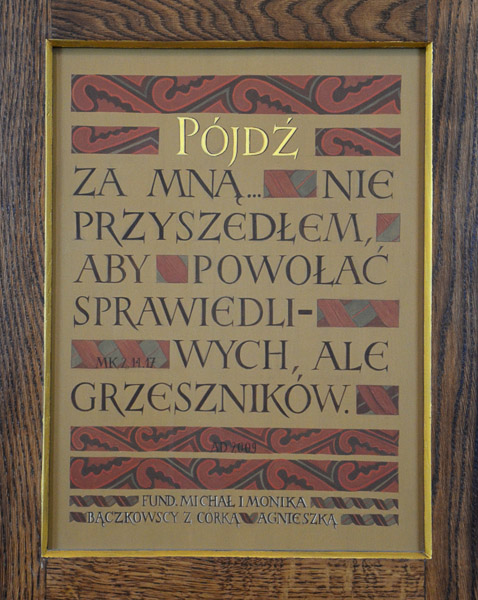 PÓJDŹ
ZA MNĄ... NIE
PRZYSZEDŁEM,
ABY POWOŁAĆ
SPRAWIEDLI-
MK 2, 14. 17 WYCH, ALE
GRZESZNIKÓW.
AD 2009
FUND. MICHAŁ I MONIKA
BĄCZKOWSCY Z CÓRKĄ AGNIESZKĄ